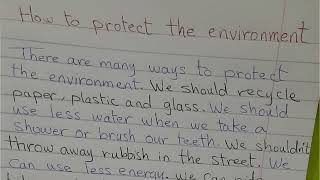 How to protect the environment
There are many ways to protect
the environment. We should recycle
paper, plastic and glass. We should
use less water when we take a
shower or brush our teeth. We shouldn't
throw away rubbish in the street. We
can use less energy. We can